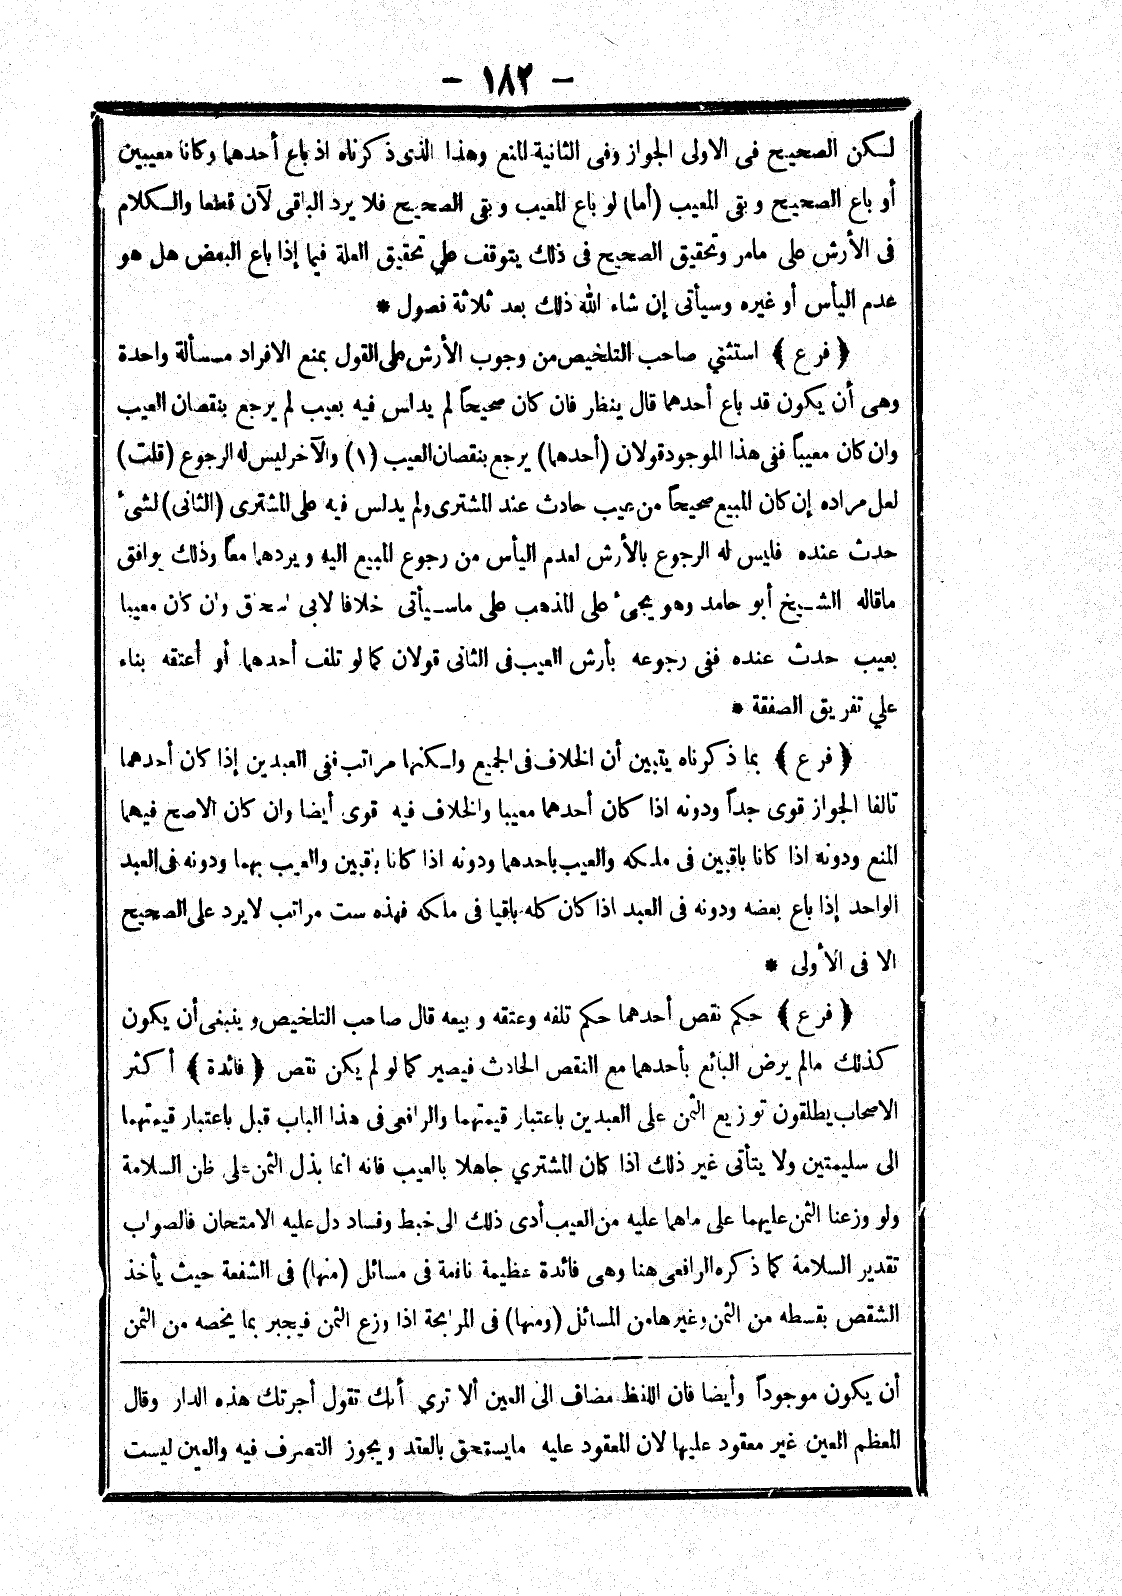 — ١٨٢ —
لكن الصحيح فى الاولى الجواز وفى الثانية المنع وهذا الذى ذكرناه اذ باع أحدهما وكانا معيبين
أو باع الصحيح وبقى المعيب (أما) لو باع المعيب وبقى الصحيح فلا يرد الباقى لآن قطعا والكلام
فى الأرش على مامر وتحقيق الصحيح فى ذلك يتوقف علي تحقيق العلة فيما إذا باع البعض هل هو
عدم اليأس أو غيره وسيأتى إن شاء الله ذلك بعد ثلاثة فصول *
﴿ فرع ﴾ استثني صاحب التلخيص من وجوب الأرش على القول بمنع الافراد مسألة واحدة
وهى أن يكون قد باع أحدهما قال ينظر فان كان صحيحاً لم يدلس فيه بعيب لم يرجع بنقصان العيب
وان كان معيباً ففى هذا الموجود قولان (أحدهما) يرجع بنقصان العيب (١) والآخر ليس له الرجوع (قلت)
لعل مراده إن كان المبيع صحيحاً من عيب حادث عند المشترى ولم يدلس فيه على المشترى (الثانى) لشىء
حدث عنده فليس له الرجوع بالأرش لعدم اليأس من رجوع المبيع اليه ويردهما معاً وذلك يوافق
ماقاله الشيخ أبو حامد وهو يجىء على المذهب على ماسيأتى خلافا لابى اسحق وان كان معيبا
بعيب حدث عنده ففى رجوعه بأرش العيب فى الثانى قولان كما لو تلف أحدهما أو أعتقه بناء
علي تفريق الصفقة *
﴿ فرع ﴾ بما ذكرناه يتبين أن الخلاف فى الجميع ولكنها مراتب ففى العبدين إذا كان أحدهما
تالفا الجواز قوى جداً ودونه اذا كان أحدهما معيبا والخلاف فيه قوى أيضا وان كان الاصح فيهما
المنع ودونه اذا كانا باقيين فى ملكه والعيب باحدهما ودونه اذا كانا باقيين والعيب بهما ودونه فى العبد
الواحد إذا باع بعضه ودونه فى العبد اذا كان كله باقيا فى ملكه فهذه ست مراتب لايرد على الصحيح
الا فى الأولى *
﴿ فرع ﴾ حكم نقص أحدهما حكم تلفه وعتقه وبيعه قال صاحب التلخيص وينبغى أن يكون
كذلك مالم يرض البائع بأحدهما مع النقص الحادث فيصير كما لو لم يكن نقص ﴿ فائدة ﴾ أكثر
الاصحاب يطلقون توزيع الثمن على العبدين باعتبار قيمتهما والرافعى فى هذا الباب قيل باعتبار قيمتهما
الى سليمتين ولا يتأتى غير ذلك اذا كان المشتري جاهلا بالعيب فانه انما بذل الثمن على ظن السلامة
ولو وزعنا الثمن عليهما على ماهما عليه من العيب أدى ذلك الى خبط وفساد دل عليه الامتحان فالصواب
تقدير السلامة كما ذكره الرافعى هنا وهى فائدة عظيمة نافعة فى مسائل (منها) فى الشفعة حيث يأخذ
الشقص بقسطه من الثمن وغيرها من المسائل (ومنها) فى المرابحة اذا وزع الثمن فيجبر بما يخصه من الثمن
أن يكون موجوداً وأيضا فان اللفظ مضاف الى العين ألا تري أنك تقول أجرتك هذه الدار وقال
المعظم العين غير معقود عليها لان المعقود عليه مايستحق بالعقد ويجوز التصرف فيه والعين ليست